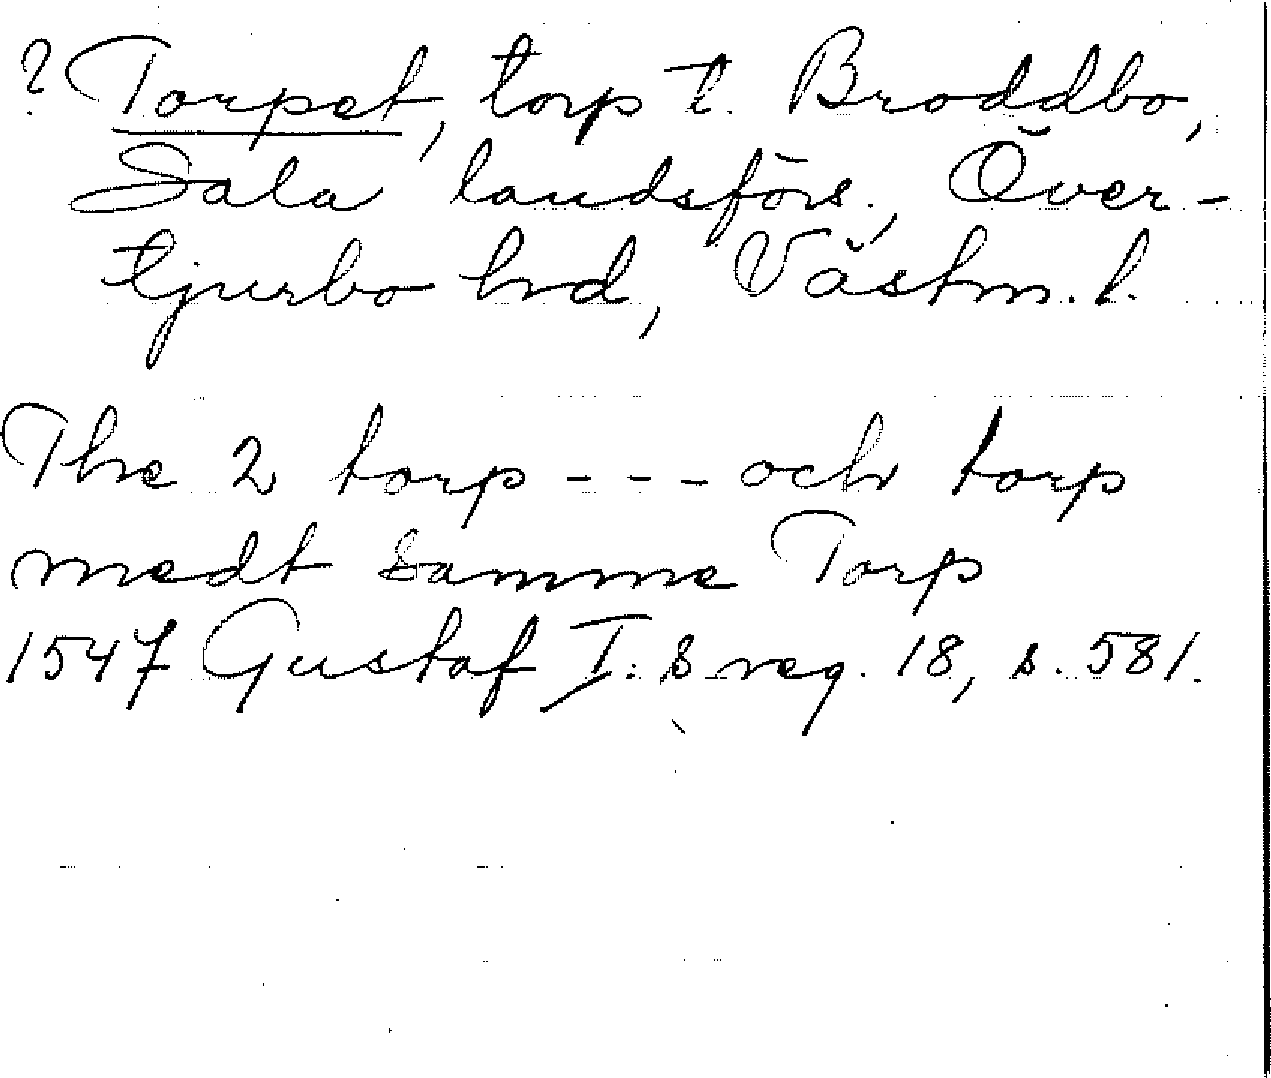 ? Torpet, torp t. Broddbo,
Sala landsförs., Över-
tjurbo hd, Västm. l.
The 2 torp - - - och torp
medt samme Torp
1547 Gustaf I:s reg. 18, s. 581.